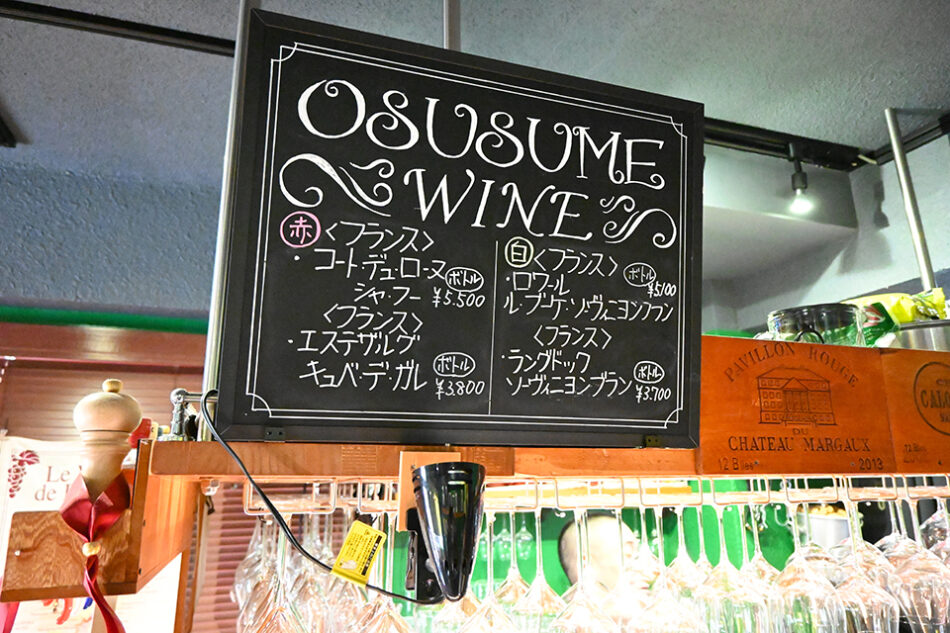 OSUSUME
WINE
赤 〈フランス〉
・コート・デュ・ローヌ ボトル
シャ・フー ¥5.500
〈フランス〉
・エステザルグ ボトル
キュベ・デ・ガレ ¥3.800
白 〈フランス〉 ボトル
・ロワール ¥5,100
ル・ブケ・ソ・ヴィニヨンブラン
〈フランス〉
・ラングドック ボトル
ソ・ヴィニヨンブラン ¥3.700
PAVILLON ROUGE
DU
CHATEAU MARGAUX
12 Blles 2013
Le
de